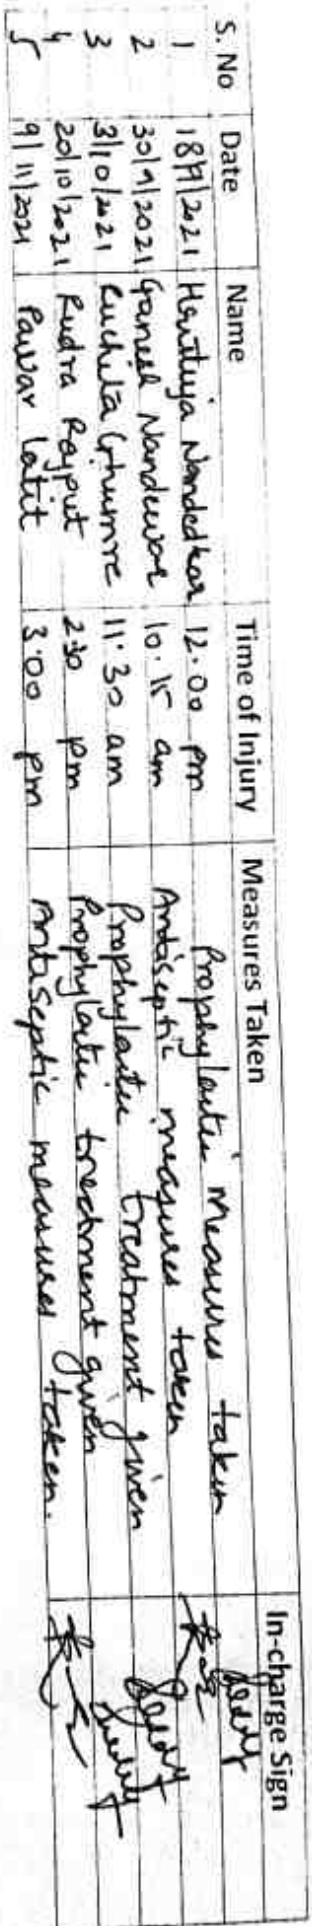 S. No Date Name Time of Injury Measures Taken In-charge Sign
1 18/9/2021 Hrutuja Nandedkar 12.00 pm Prophylactic measures taken
2 30/9/2021 Ganesh Nandewar 10.15 am Antiseptic measures taken
3 3/10/2021 Ruchita Ghumre 11.30 am Prophylactic treatment given
4 20/10/2021 Rudra Rajput 2:30 pm Prophylactic treatment given
5 9/11/2021 Pawar Latit 3.00 pm Antiseptic measures taken.